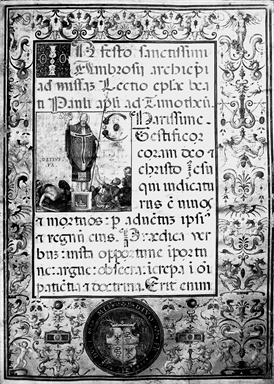 IN festo sanctissimi
Ambrosij archiep̄i
ad missaz Lectio ep̄lae bea
ti Pauli ap̄li ad Timotheū.
Charissime.
Testificor
coram deo et
christo Jesu
qui iudicatu
rus ē vivos
et mortuos: p adventū ipsi'
et regnū eius. Praedica ver
buz: insta opportune iportu
ne: argue: obsecra: icrepa i oī
patiētia et doctrina. Erit enim